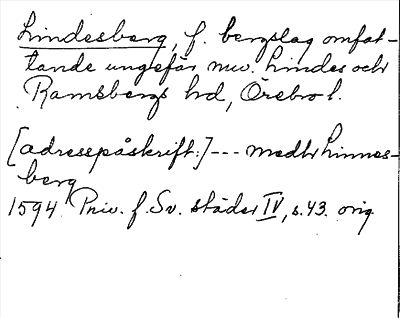 Lindesberg, f. bergslag omfat-
tande ungefär nuv. Lindes och
Ramsbergs hd, Örebro l.
[adresspåskrift:] --- medh Linnes-
berg
1594 Priv. f. Sv. städer IV, s. 43. orig